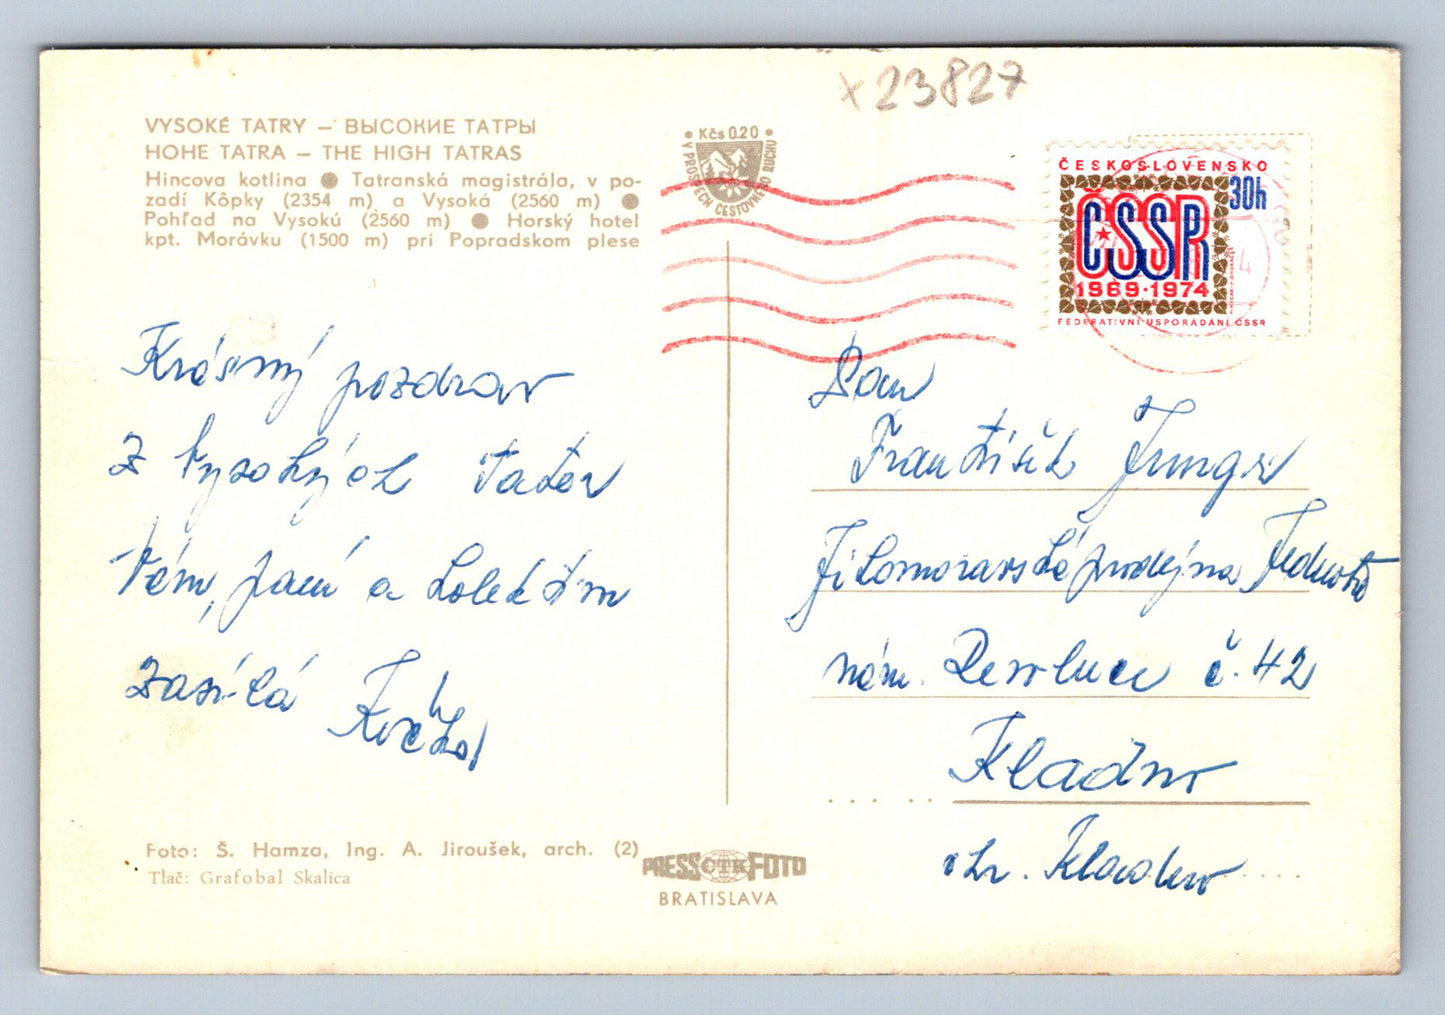 x 23827
VYSOKÉ TATRY – ВЫСОКИЕ ТАТРЫ
HOHE TATRA – THE HIGH TATRAS
Hincova kotlina ● Tatranská magistrála, v po-
zadí Kôpky (2354 m) a Vysoká (2560 m) ●
Pohľad na Vysokú (2560 m) ● Horský hotel
kpt. Morávku (1500 m) pri Popradskom plese
• Kčs 0.20 •
V PROSPECH CESTOVNÉHO RUCHU
ČESKOSLOVENSKO
30h
ČSSR
1969·1974
FEDERATIVNÍ USPOŘÁDÁNÍ ČSSR
Krásný pozdrav
z Vysokých Tater
Vám, paní a kolektivu
zasílá
Pan
František Junger
Jihomoravská prodejna Jednota
nám. Revoluce č. 42
Kladno
okr. Kladno
Foto: Š. Hamza, Ing. A. Jiroušek, arch. (2)
Tlač: Grafobal Skalica
PRESS ČTK FOTO
BRATISLAVA